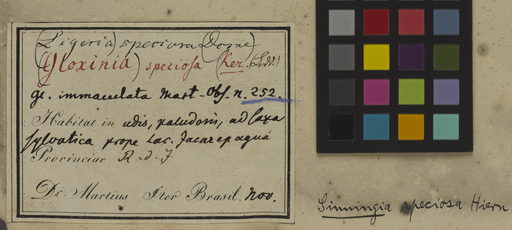 (Ligeria) speciosa Decne)
(Gloxinia) speciosa (Ker. Lodd.)
Gl. immaculata Mart. Obs. n. 252.
Habitat in udis, paludosis, ad saxa
sylvatica prope lac. Jacarepaguá
Provinciae R. d. J.
Dr Martius Iter Brasil. Nov.
Sinningia speciosa Hiern